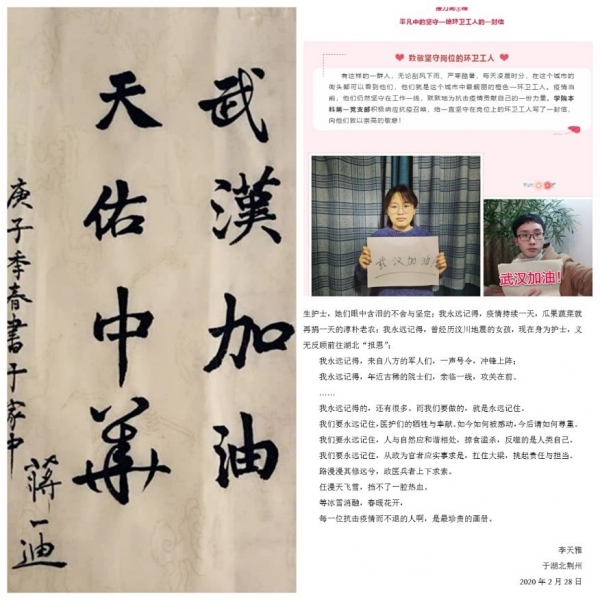 武漢加油
天佑中華
庚子季春書于家中
蔣一迪
平凡中的坚守—给环卫工人的一封信
致敬坚守岗位的环卫工人
有这样的一群人，无论刮风下雨、严寒酷暑，每天凌晨时分，在这个城市的
街头都可以看到他们，他们就是这个城市中最靓丽的橙色—环卫工人。疫情当
前，他们仍然坚守在工作一线，默默地为抗击疫情贡献自己的一份力量。学院本
科第一党支部积极响应抗疫召唤，给一直坚守在岗位上的环卫工人写了一封信，
向他们致以崇高的敬意！
武汉加油!
武汉加油！
生护士，她们眼中含泪的不舍与坚定；我永远记得，疫情持续一天，瓜果蔬菜就
再捐一天的淳朴老农；我永远记得，曾经历汶川地震的女孩，现在身为护士，义
无反顾前往湖北“报恩”；
我永远记得，来自八方的军人们，一声号令，冲锋上阵；
我永远记得，年近古稀的院士们，亲临一线，攻关在前。
……
我永远记得的，还有很多。而我们要做的，就是永远记住。
我们要永远记住,医护们的牺牲与奉献.如今如何被感动,今后请如何尊重。
我们要永远记住，人与自然应和谐相处，掠食滥杀，反噬的是人类自己。
我们要永远记住，从政为官者应实事求是，扛住大梁，挑起责任与担当。
路漫漫其修远兮，政医兵者上下求索。
任漫天飞雪，挡不了一腔热血。
等冰雪消融，春暖花开，
每一位抗击疫情而不退的人啊，是最珍贵的画册。
李天雅
于湖北荆州
2020 年 2 月 28 日